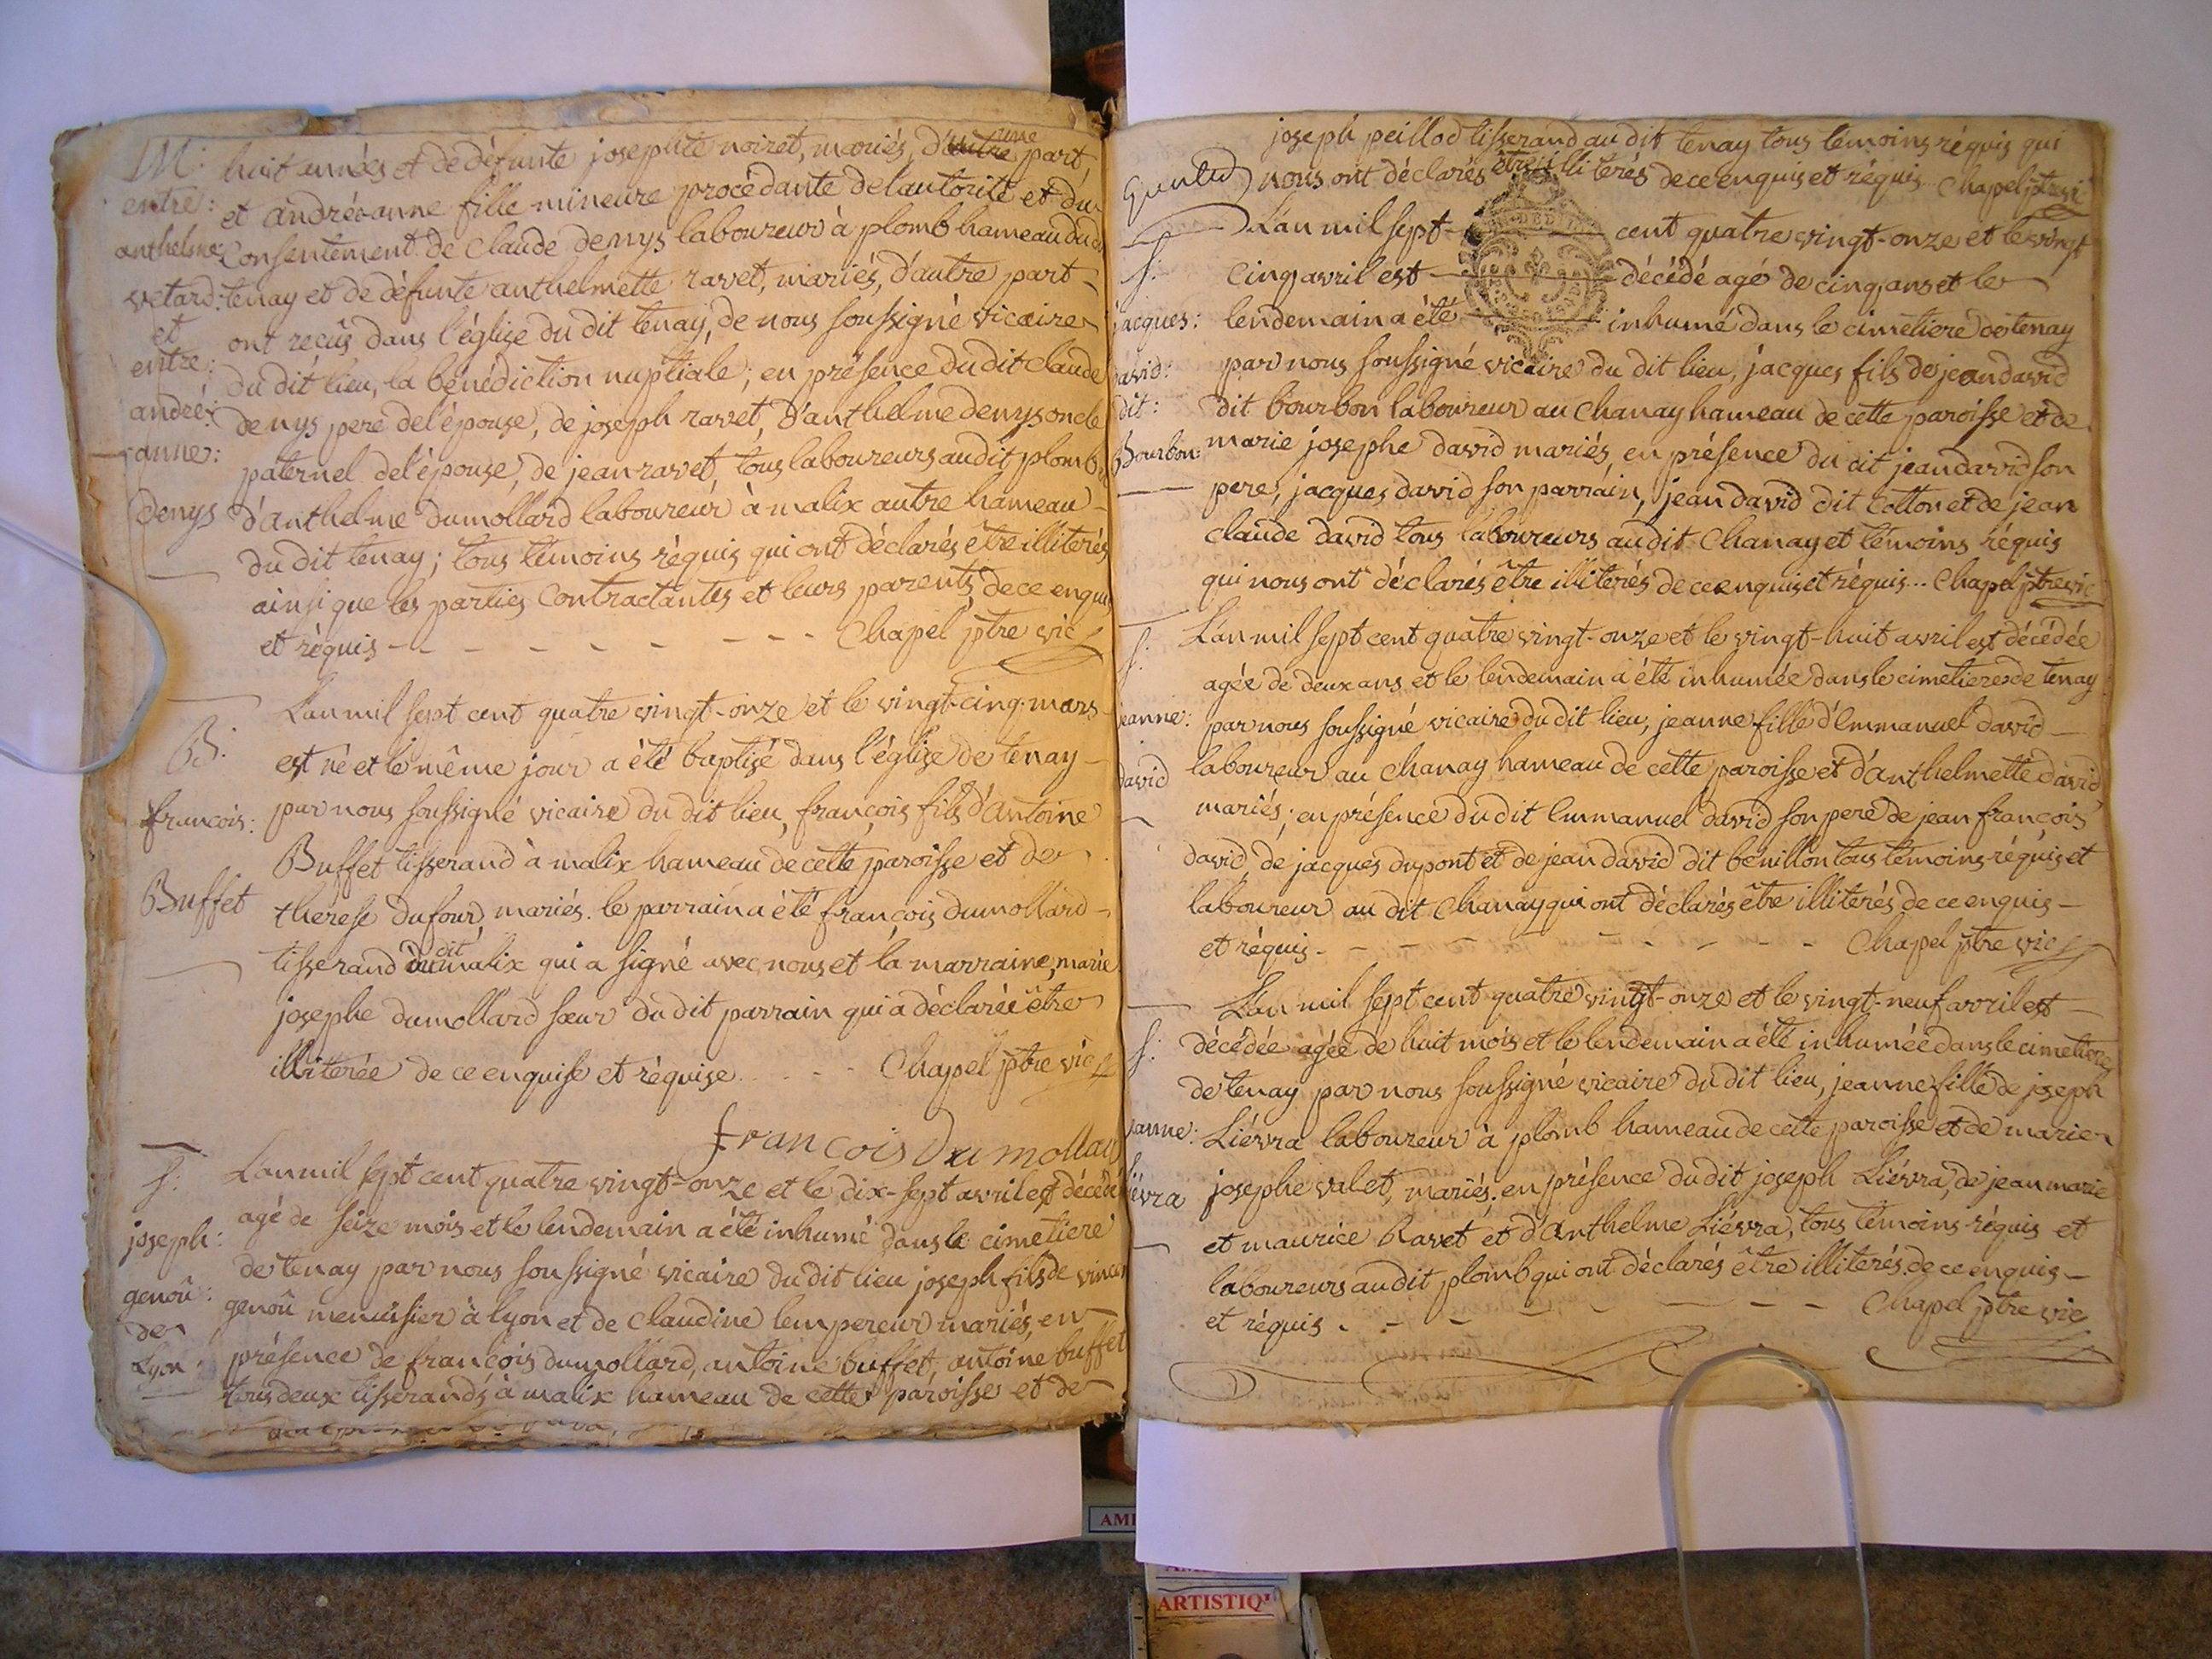 M:
entre:
anthelme
vetard:
et
entre:
andeé:
anne:
denys
huit années et de défunte josephte noiret, mariés, d'une part
et andrée-anne fille mineure procédante de l'autorité et du
Consentement de Claude denys laboureur à plomb hameau du dit
tenay et de défunte anthelmette ravet, mariés, d'autre part
ont reçûs dans l'église du dit tenay, de nous soussigné vicaire
du dit lieu, la bénédiction nuptiale; en présence du dit claude
denys pere de l'épouse, de joseph ravet, d'anthelme denys oncle
paternel de l'épouse, de jean ravet, tous laboureurs au dit plomb,
d'anthelme dumollard laboureur à malix autre hameau
du dit tenay; tous témoins réquis qui ont déclarés être illiterés
ainsi que les parties Contractantes et leurs parents de ce enquis
et réquis - - - - - - - - - Chapel ptre vic
B:
françois:
Buffet
L'an mil sept cent quatre vingt-onze et le vingt-cinq mars
est né et le même jour a été baptisé dans l'église de tenay
par nous soussigné vicaire du dit lieu, françois fils d'antoine
Buffet tisserand à malix hameau de cette paroisse et de
thérese dufour, mariés. le parrain a été françois dumollard
tisserand du dit malix qui a signé avec nous et la marraine, marie
josephe dumollard sœur du dit parrain qui a déclarée être
illiterée de ce enquise et réquise - - - - Chapel ptre vic
francois Dumollard
S:
joseph:
genoû:
de
Lyon:
L'an mil sept cent quatre vingt-onze et le dix-sept avril est décédé
agé de seize mois et le lendemain a été inhumé dans le cimetiere
de tenay par nous soussigné vicaire du dit lieu joseph fils de vincent
genoû menuisier à lyon et de Claudine lempereur mariés, en
présence de françois dumollard, antoine buffet, antoine buffet
tous deux tisserands à malix hameau de cette paroisse et de
joseph peillod tisserand au dit tenay tous témoins réquis qui
nous ont déclarés être illiterés de ce enquis et réquis Chapel ptre vi
S:
jacques:
david:
dit:
Bourbon:
L'an mil sept cent quatre vingt-onze et le vingt
Cinq avril est décédé agé de cinq ans et le
lendemain a été inhumé dans le cimetiere de tenay
par nous soussigné vicaire du dit lieu, jacques fils de jean david
dit bourbon laboureur au Chanay hameau de cette paroisse et de
marie josephe david mariés, en présence du dit jean david son
pere, jacques david son parrain, jean david dit Cotton et de jean
Claude david tous laboureurs au dit Chanay et témoins réquis
qui nous ont déclarés être illiterés de ce enquis et réquis... Chapel ptre vic
S:
jeanne:
david
L'an mil sept cent quatre vingt-onze et le vingt-huit avril est décédée
agée de deux ans et le lendemain a été inhumée dans le cimetiere de tenay
par nous soussigné vicaire du dit lieu, jeanne fille d'Emmanuel david
laboureur au Chanay hameau de cette paroisse et d'anthelmette david
mariés; en présence du dit Emmanuel david son pere de jean françois
david, de jacques dupont et de jean david dit benillon tous témoins réquis et
laboureur au dit Chanay qui ont déclarés être illiterés de ce enquis
et réquis - - - - - - - - - Chapel ptre vic
S:
janne:
Liévra
L'an mil sept cent quatre vingt-onze et le vingt-neuf avril est
décédée agée de huit mois et le lendemain a été inhumée dans le cimetiere
de tenay par nous soussigné vicaire du dit lieu, jeanne fille de joseph
Liévra laboureur à plomb hameau de cette paroisse et de marie
josephe valet, mariés. en présence du dit joseph Liévra, de jean marie
et maurice Ravet et d'Anthelme Liévra, tous témoins réquis et
laboureurs au dit plomb qui ont déclarés être illiterés de ce enquis
et réquis - - - - - - - - Chapel ptre vic
ARTISTIQ'